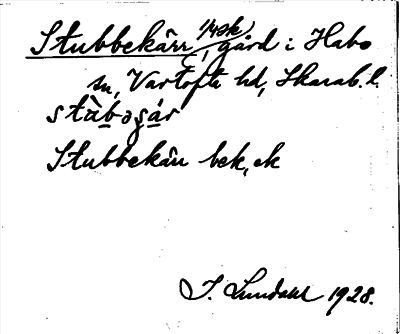 Stubbekärr, 1/4 ek, gård i Habo
sn, Vartofta hd, Skarab. l.
Stubbekärr bek, ek
I. Lundahl 1928.